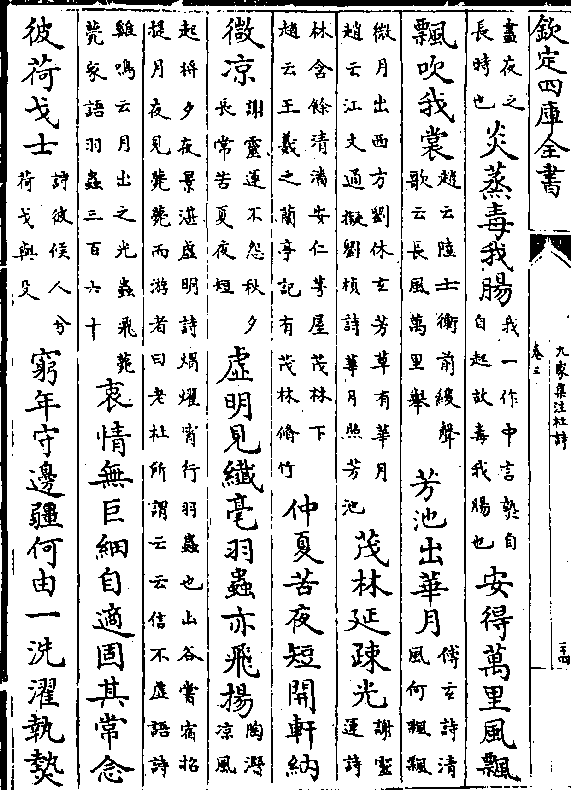 欽定四庫全書
九家集注杜詩
卷三
盡夜之
長時也
炎蒸毒我腸
我一作中言熱自
自起故毒我腸也
安得萬里風飄
飄吹我裳
趙云陸士衡前緩聲
歌云長風萬里舉
芳池出華月
傅玄詩清
風何飄飄
微月出西方劉休玄芳草有華月
趙云江文通擬劉楨詩華月照芳池
茂林延疎光
謝靈
運詩
林含餘清潘安仁寺屋茂林下
趙云王羲之蘭亭記有茂林脩竹
仲夏苦夜短開軒納
微凉
謝靈運不怨秋夕
長常苦夏夜短
虛明見纖毫羽蟲亦飛揚
陶潛
凉風
起將夕夜景湛虛明詩熠燿宵行羽蟲也山谷嘗宿招
提月夜見薨薨而游者曰老杜所謂云云信不虛語詩
雞鳴云月出之光蟲飛薨
薨家語羽蟲三百六十
衷情無巨細自適固其常念
彼荷戈士
詩彼候人兮
荷戈與殳
窮年守邊疆何由一洗濯執熱